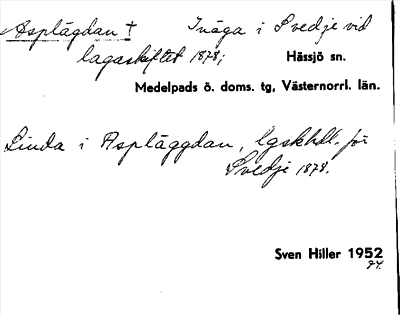 Asplägdan † Inäga i Svedje vid
lagaskiftet 1878; Hässjö sn.
Medelpads ö. doms. tg, Västernorrl. län.
Linda i Aspläggdan, lgskhdl. för
Svedje 1878.
Sven Hiller 1952